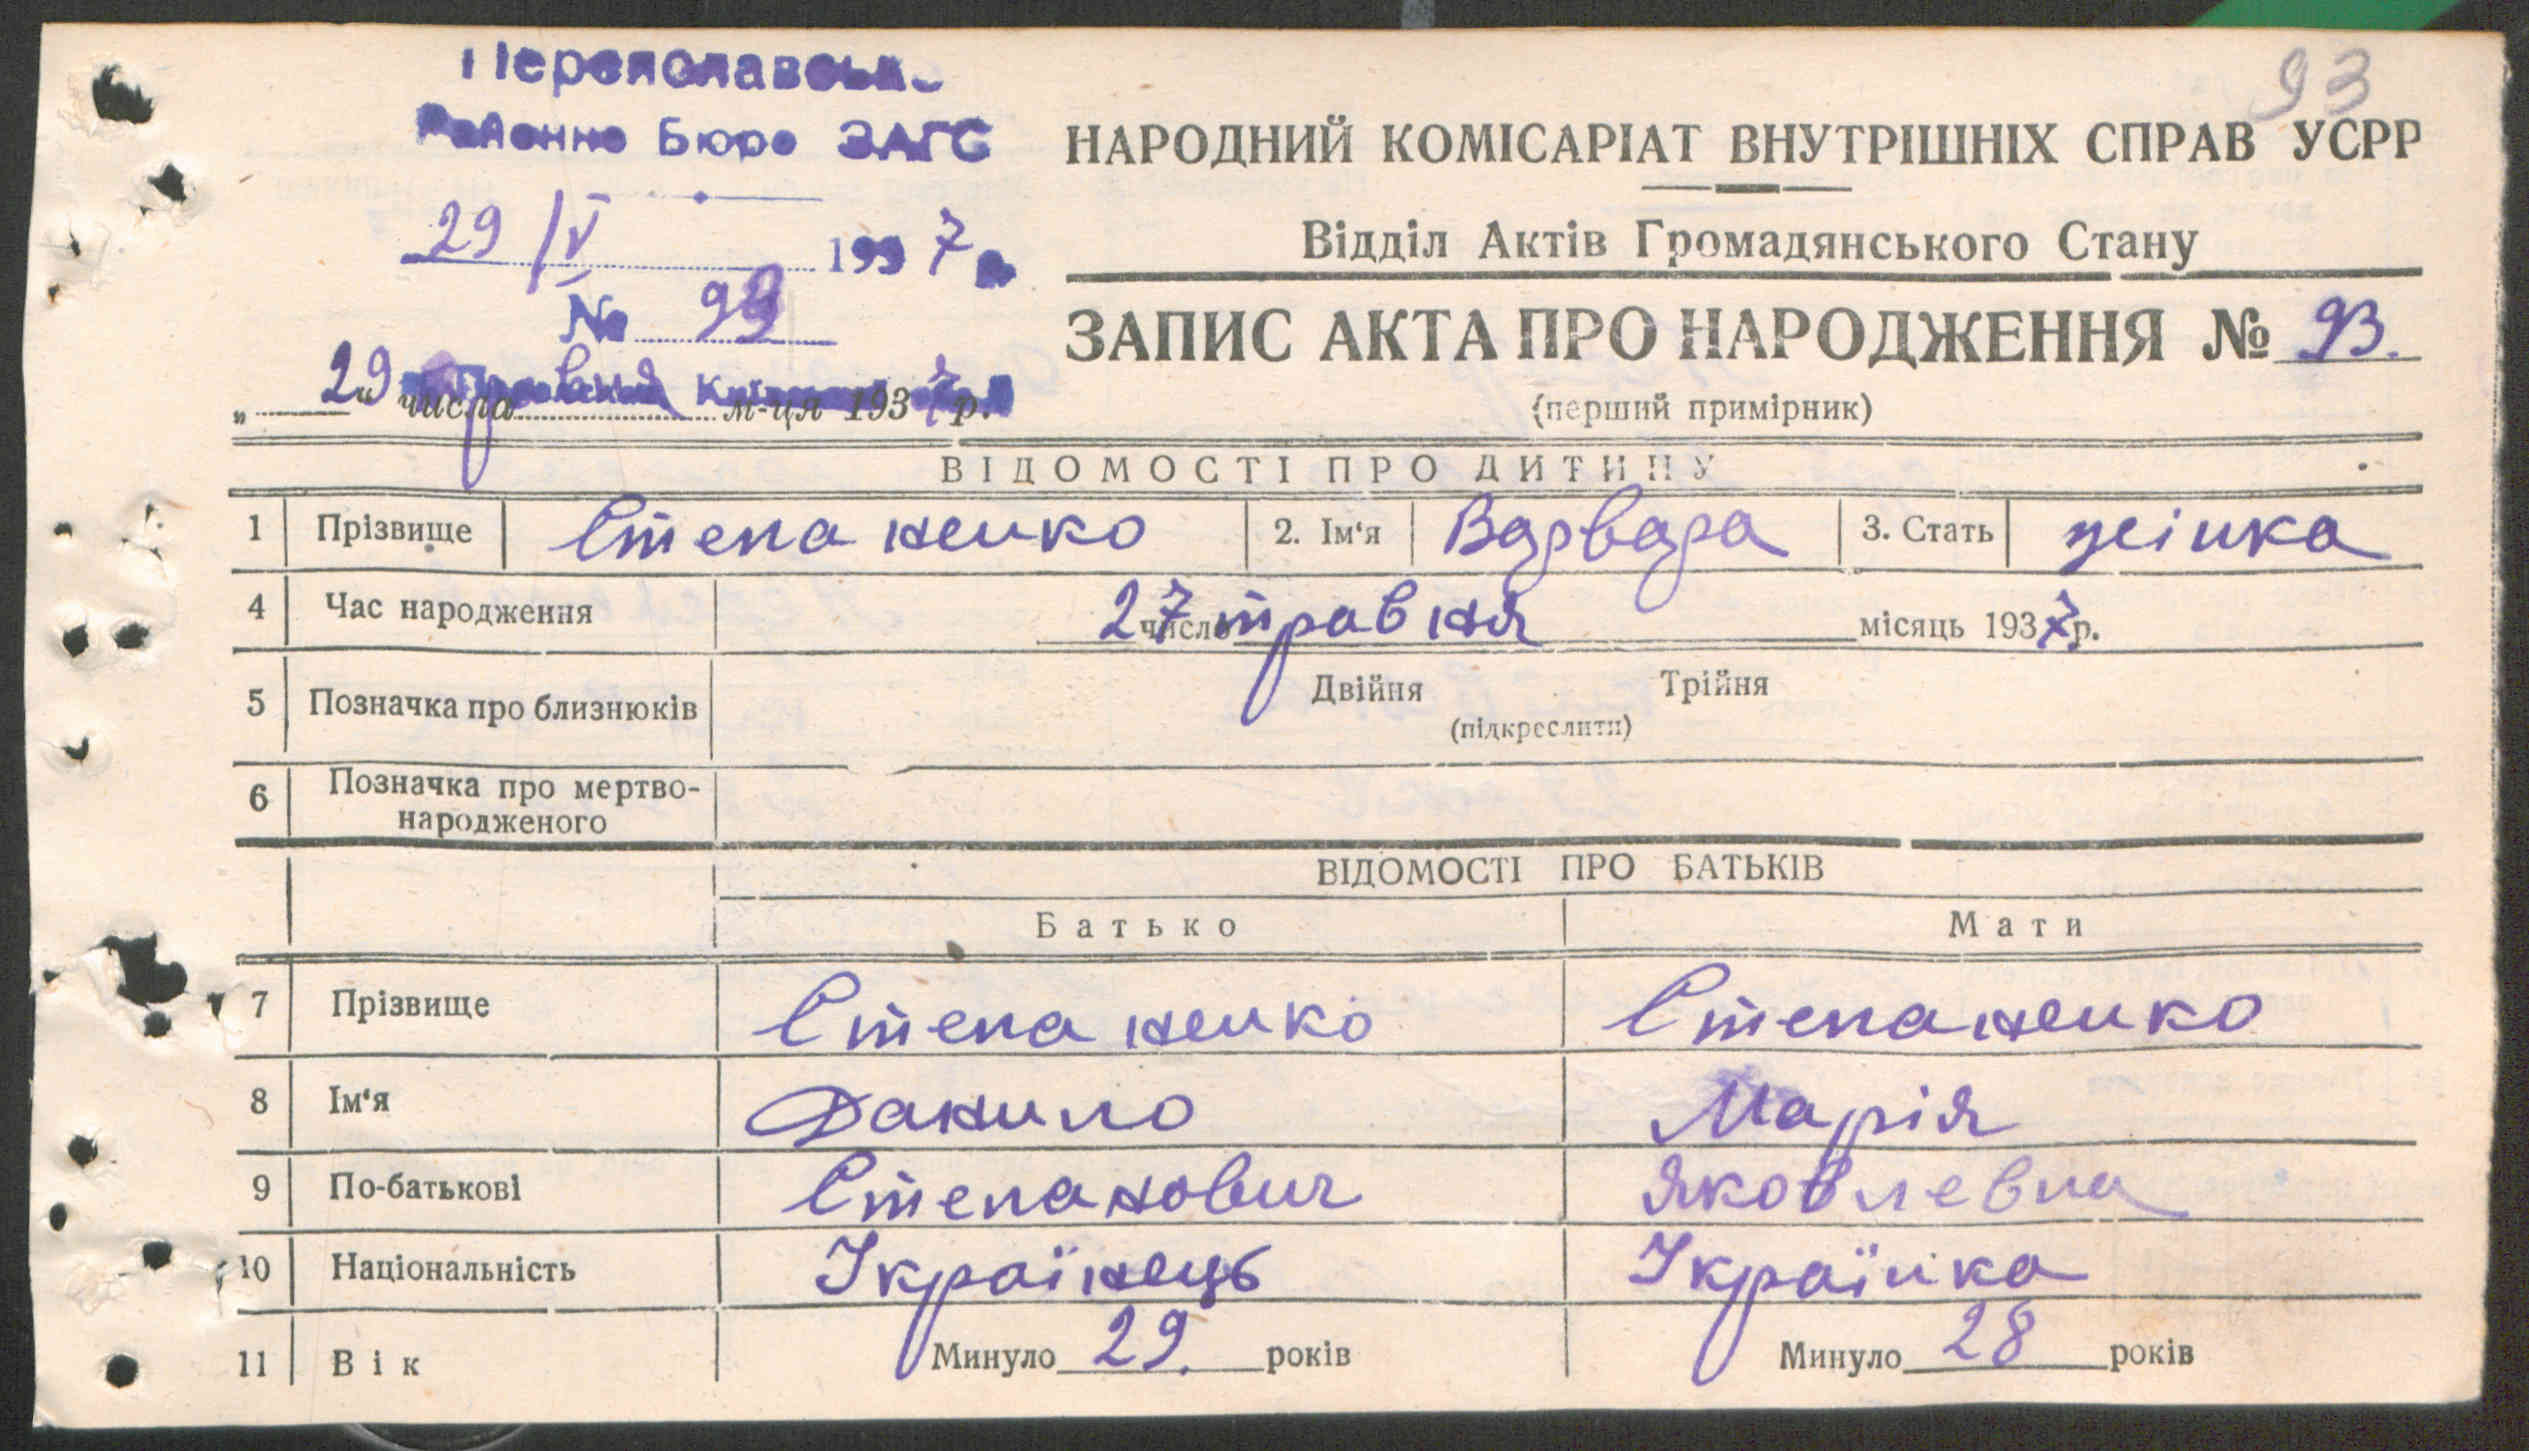 93
Переяславськ
Районне Бюро ЗАГС
29/V 1937 р.
№ 93
НАРОДНИЙ КОМІСАРІАТ ВНУТРІШНІХ СПРАВ УСРР
Відділ Актів Громадянського Стану
ЗАПИС АКТА ПРО НАРОДЖЕННЯ № 93.
(перший примірник)
„29“ числа травня м-ця 1937 р.
ВІДОМОСТІ ПРО ДИТИНУ
1 Прізвище Степаненко 2. Ім‘я Варвара 3. Стать жінка
4 Час народження 27 число травня місяць 1937 р.
5 Позначка про близнюків Двійня Трійня
(підкреслити)
6 Позначка про мертво-
народженого
ВІДОМОСТІ ПРО БАТЬКІВ
Батько Мати
7 Прізвище Степаненко Степаненко
8 Ім‘я Данило Марія
9 По-батькові Степанович Яковлевна
10 Національність Українець Українка
11 Вік Минуло 29. років Минуло 28 років